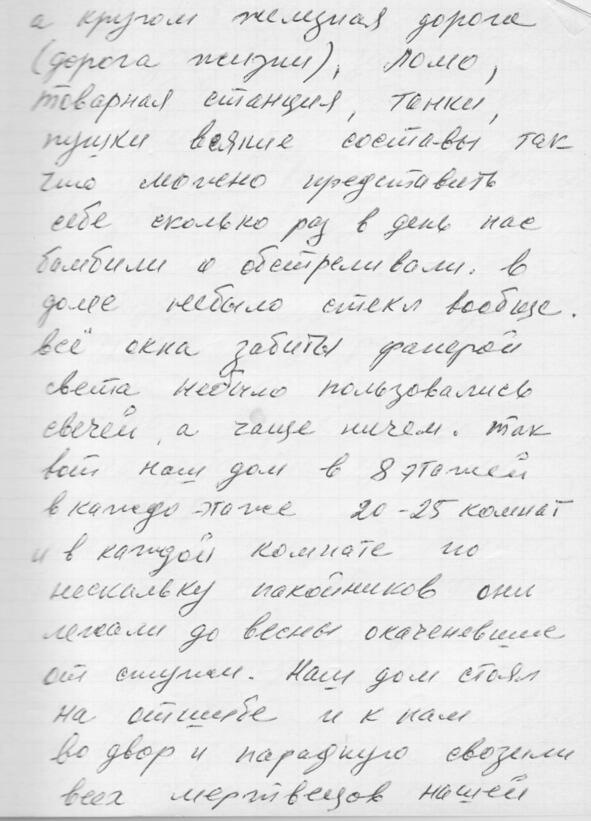 а кругом железная дорога
(дорога жизни), ломо,
товарная станция, танки,
пушки всякие составы так
что можено представить
себе сколько раз в день нас
бамбили и обстреливали. в
доме небыло стекл вообще.
всё окна забиты фанерой
света небыло пользовались
свечей, а чаще ничем. так
вот наш дом в 8 этажей
в каждо этаже 20-25 комнат
и в каждой комнате по
нескальку пакойников они
лежали до весны окаченевшие
от стужи. Наш дом стоял
на отшибе и к нам
во двор и парадную свозили
всех мертвецов нашей